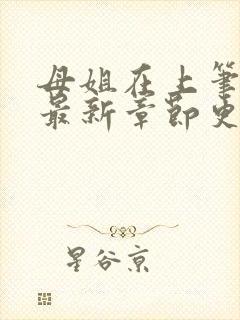 母姐在上笔
最新章节史
星谷京